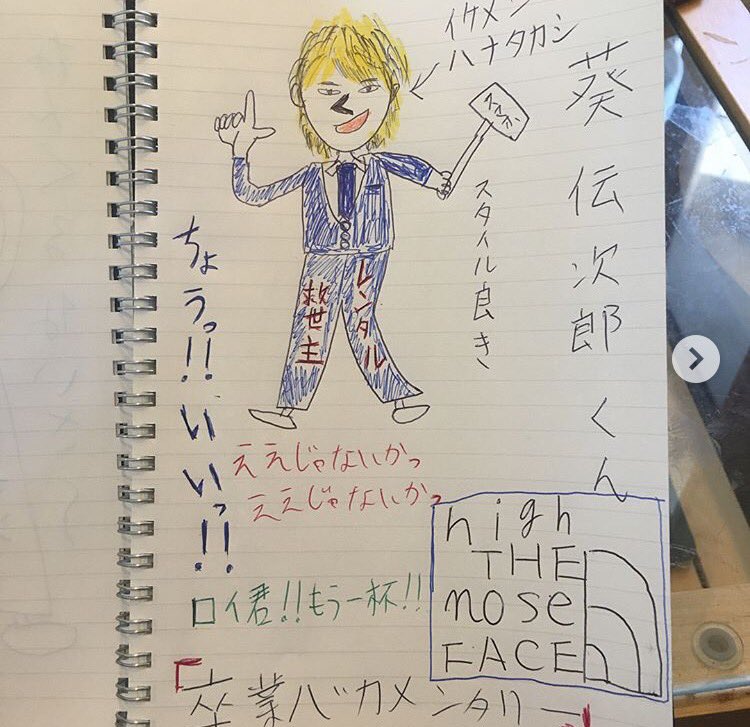 葵伝次郎くん
イケメン
ハナタカシ
スタイル良き
レンタル
救世主
ちょうっ!!いいっ!!
ええじゃないかっ
ええじゃないかっ
ロイ君!!もう一杯!!
high
THE
nose
FACE
「卒業バカメンタリー」